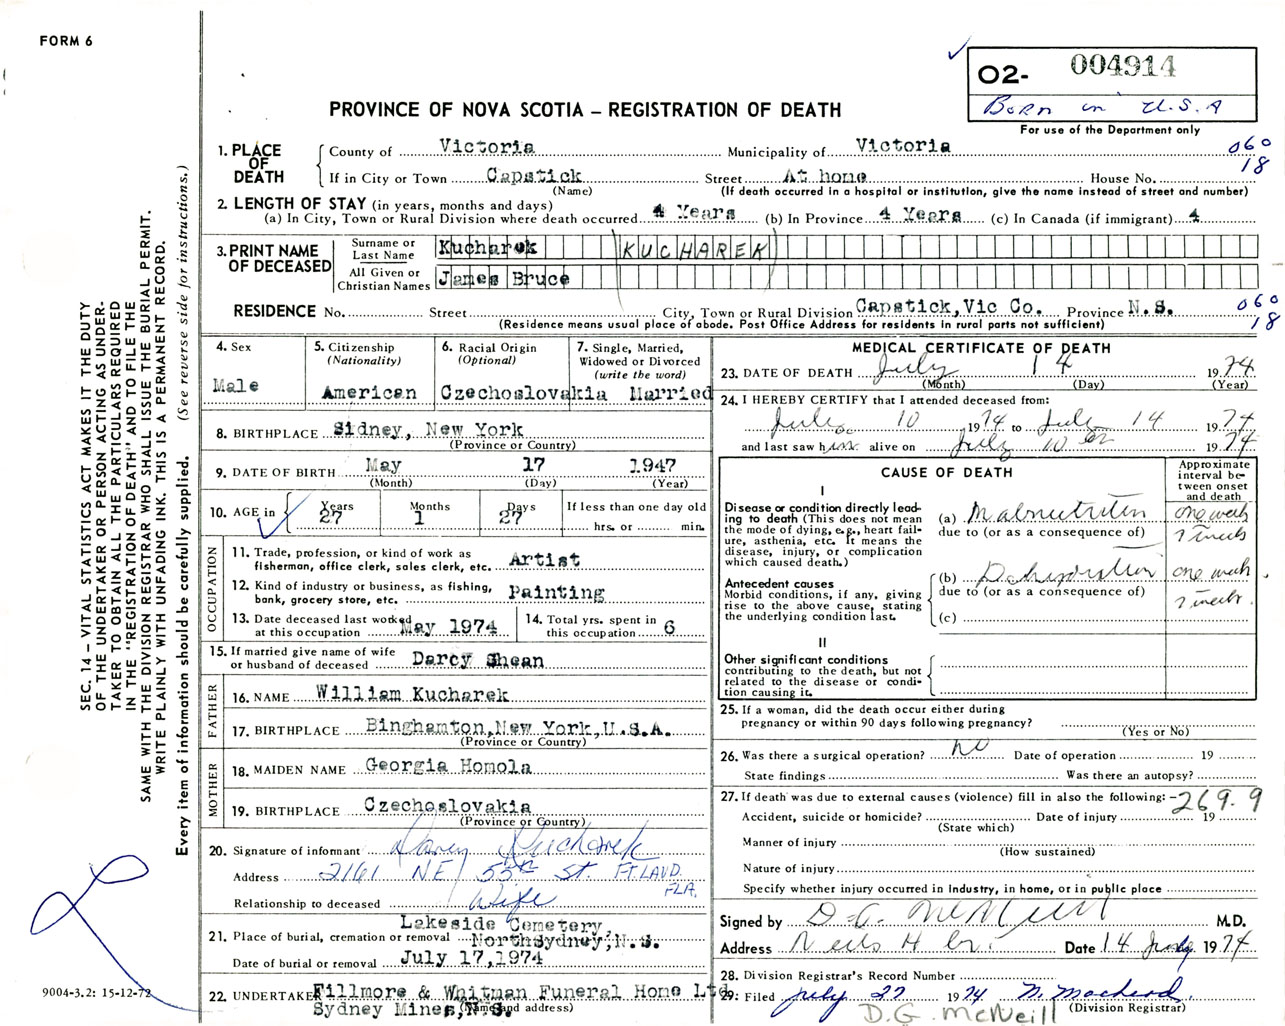 FORM 6
O2- 004914
Born in U.S.A
For use of the Department only
PROVINCE OF NOVA SCOTIA – REGISTRATION OF DEATH
1. PLACE OF DEATH
County of Victoria Municipality of Victoria 060
If in City or Town Capstick Street At home House No. 18
(Name) (If death occurred in a hospital or institution, give the name instead of street and number)
2. LENGTH OF STAY (in years, months and days)
(a) In City, Town or Rural Division where death occurred 4 Years (b) In Province 4 Years (c) In Canada (if immigrant) 4
3. PRINT NAME OF DECEASED
Surname or Last Name Kucharek (KUCHAREK)
All Given or Christian Names James Bruce
RESIDENCE No. Street City, Town or Rural Division Capstick, Vic Co. Province N.S. 060 18
(Residence means usual place of abode. Post Office Address for residents in rural parts not sufficient)
4. Sex Male
5. Citizenship (Nationality) American
6. Racial Origin (Optional) Czechoslovakia
7. Single, Married, Widowed or Divorced (write the word) Married
8. BIRTHPLACE Sidney, New York
(Province or Country)
9. DATE OF BIRTH May 17 1947
(Month) (Day) (Year)
10. AGE in Years 27 Months 1 Days 27 If less than one day old hrs. or min.
OCCUPATION
11. Trade, profession, or kind of work as fisherman, office clerk, sales clerk, etc. Artist
12. Kind of industry or business, as fishing, bank, grocery store, etc. Painting
13. Date deceased last worked at this occupation May 1974
14. Total yrs. spent in this occupation 6
15. If married give name of wife or husband of deceased Darcy Shean
FATHER
16. NAME William Kucharek
17. BIRTHPLACE Binghamton, New York, U.S.A.
(Province or Country)
MOTHER
18. MAIDEN NAME Georgia Homola
19. BIRTHPLACE Czechoslovakia
(Province or Country)
20. Signature of informant Darcy Kucharek
Address 2161 NE 55th St. FT. LAUD. FLA.
Relationship to deceased Wife
21. Place of burial, cremation or removal Lakeside Cemetery, North Sydney, N.S.
Date of burial or removal July 17, 1974
22. UNDERTAKER Fillmore & Whitman Funeral Home Ltd.
Sydney Mines, N.S.
(Name and address)
MEDICAL CERTIFICATE OF DEATH
23. DATE OF DEATH July 14 1974
(Month) (Day) (Year)
24. I HEREBY CERTIFY that I attended deceased from:
July 10 1974 to July 14 1974
and last saw him alive on July 10 1974
CAUSE OF DEATH
Approximate interval between onset and death
I
Disease or condition directly leading to death (This does not mean the mode of dying, e.g., heart failure, asthenia, etc. It means the disease, injury, or complication which caused death.)
(a) Malnutrition one week
due to (or as a consequence of) ? weeks
Antecedent causes
Morbid conditions, if any, giving rise to the above cause, stating the underlying condition last.
(b) Dehydration one week
due to (or as a consequence of) ? weeks
(c)
II
Other significant conditions
contributing to the death, but not related to the disease or condition causing it.
25. If a woman, did the death occur either during pregnancy or within 90 days following pregnancy?
(Yes or No)
26. Was there a surgical operation? no Date of operation 19
State findings Was there an autopsy?
27. If death was due to external causes (violence) fill in also the following: – 269.9
Accident, suicide or homicide? Date of injury 19
(State which)
Manner of injury
(How sustained)
Nature of injury
Specify whether injury occurred in Industry, in home, or in public place
Signed by D.G. McNeill M.D.
Address Neils Hbr. Date 14 July 1974
28. Division Registrar's Record Number
29. Filed July 27 1974 N. MacLeod
(Division Registrar)
D.G. McNeill
SEC. 14 – VITAL STATISTICS ACT MAKES IT THE DUTY
OF THE UNDERTAKER OR PERSON ACTING AS UNDER-
TAKER TO OBTAIN ALL THE PARTICULARS REQUIRED
IN THE "REGISTRATION OF DEATH" AND TO FILE THE
SAME WITH THE DIVISION REGISTRAR WHO SHALL ISSUE THE BURIAL PERMIT.
WRITE PLAINLY WITH UNFADING INK. THIS IS A PERMANENT RECORD.
Every item of information should be carefully supplied. (See reverse side for instructions.)
9004-3.2: 15-12-72